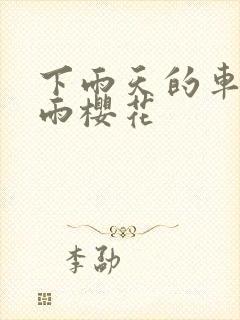 下雨天的車
雨櫻花
李劭